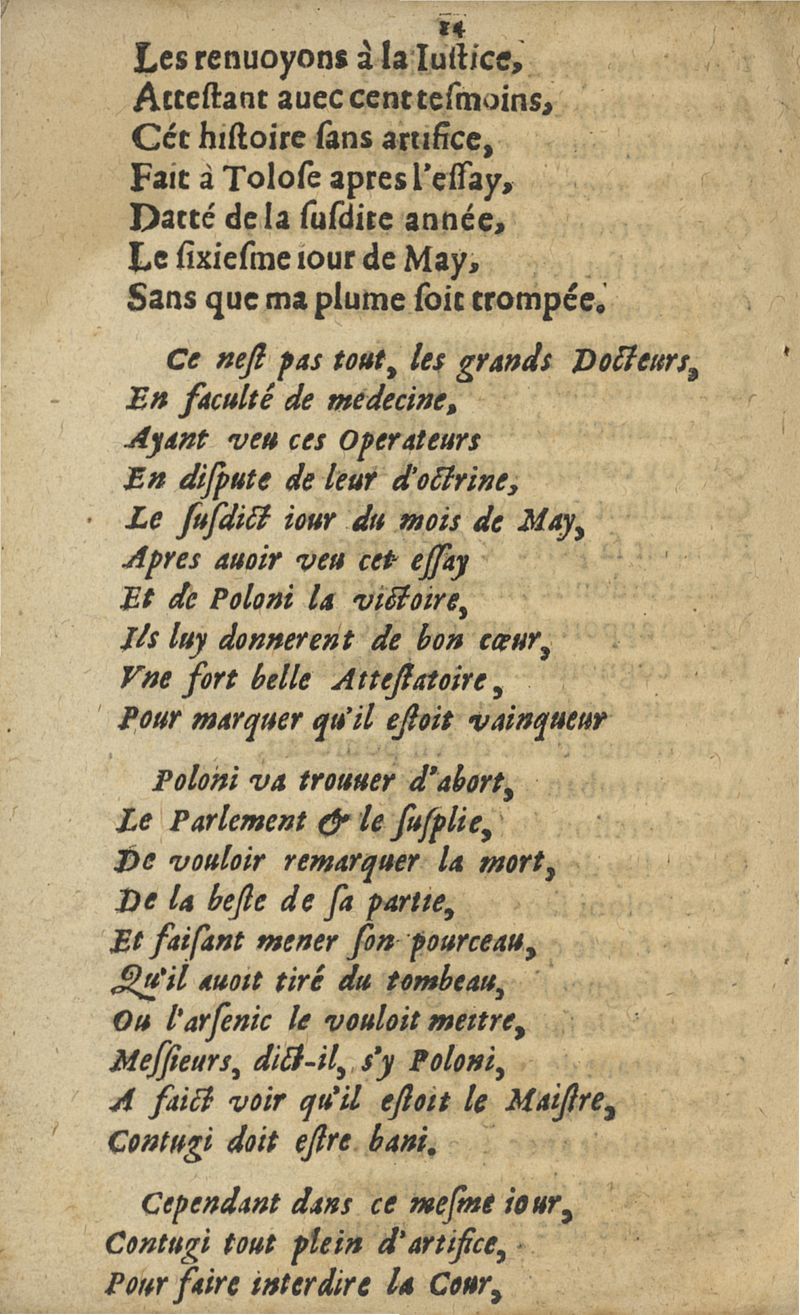 14
Les renuoyons à la Iuſtice,
Atteſtant auec cent teſmoins,
Cét hiſtoire ſans artifice,
Fait à Toloſe apres l'eſſay,
Datté de la ſuſdite année,
Le ſixieſme iour de May,
Sans que ma plume ſoit trompée.
Ce neſt pas tout, les grands Docteurs,
En faculté de medecine,
Ayant veu ces Operateurs
En diſpute de leur d'octrine,
Le ſuſdict iour du mois de May,
Apres auoir veu cet eſſay
Et de Poloni la victoire,
Ils luy donnerent de bon cœur,
Vne fort belle Atteſtatoire,
Pour marquer qu'il eſtoit vainqueur
Poloni va trouuer d'abort,
Le Parlement & le ſuſplie,
De vouloir remarquer la mort,
De la beſte de ſa partie,
Et faiſant mener ſon pourceau,
Qu'il auoit tiré du tombeau,
Ou l'arſenic le vouloit mettre,
Meſſieurs, dict-il, s'y Poloni,
A faict voir qu'il eſtoit le Maiſtre,
Contugi doit eſtre bani.
Cependant dans ce meſme iour,
Contugi tout plein d'artifice,
Pour faire interdire la Cour,